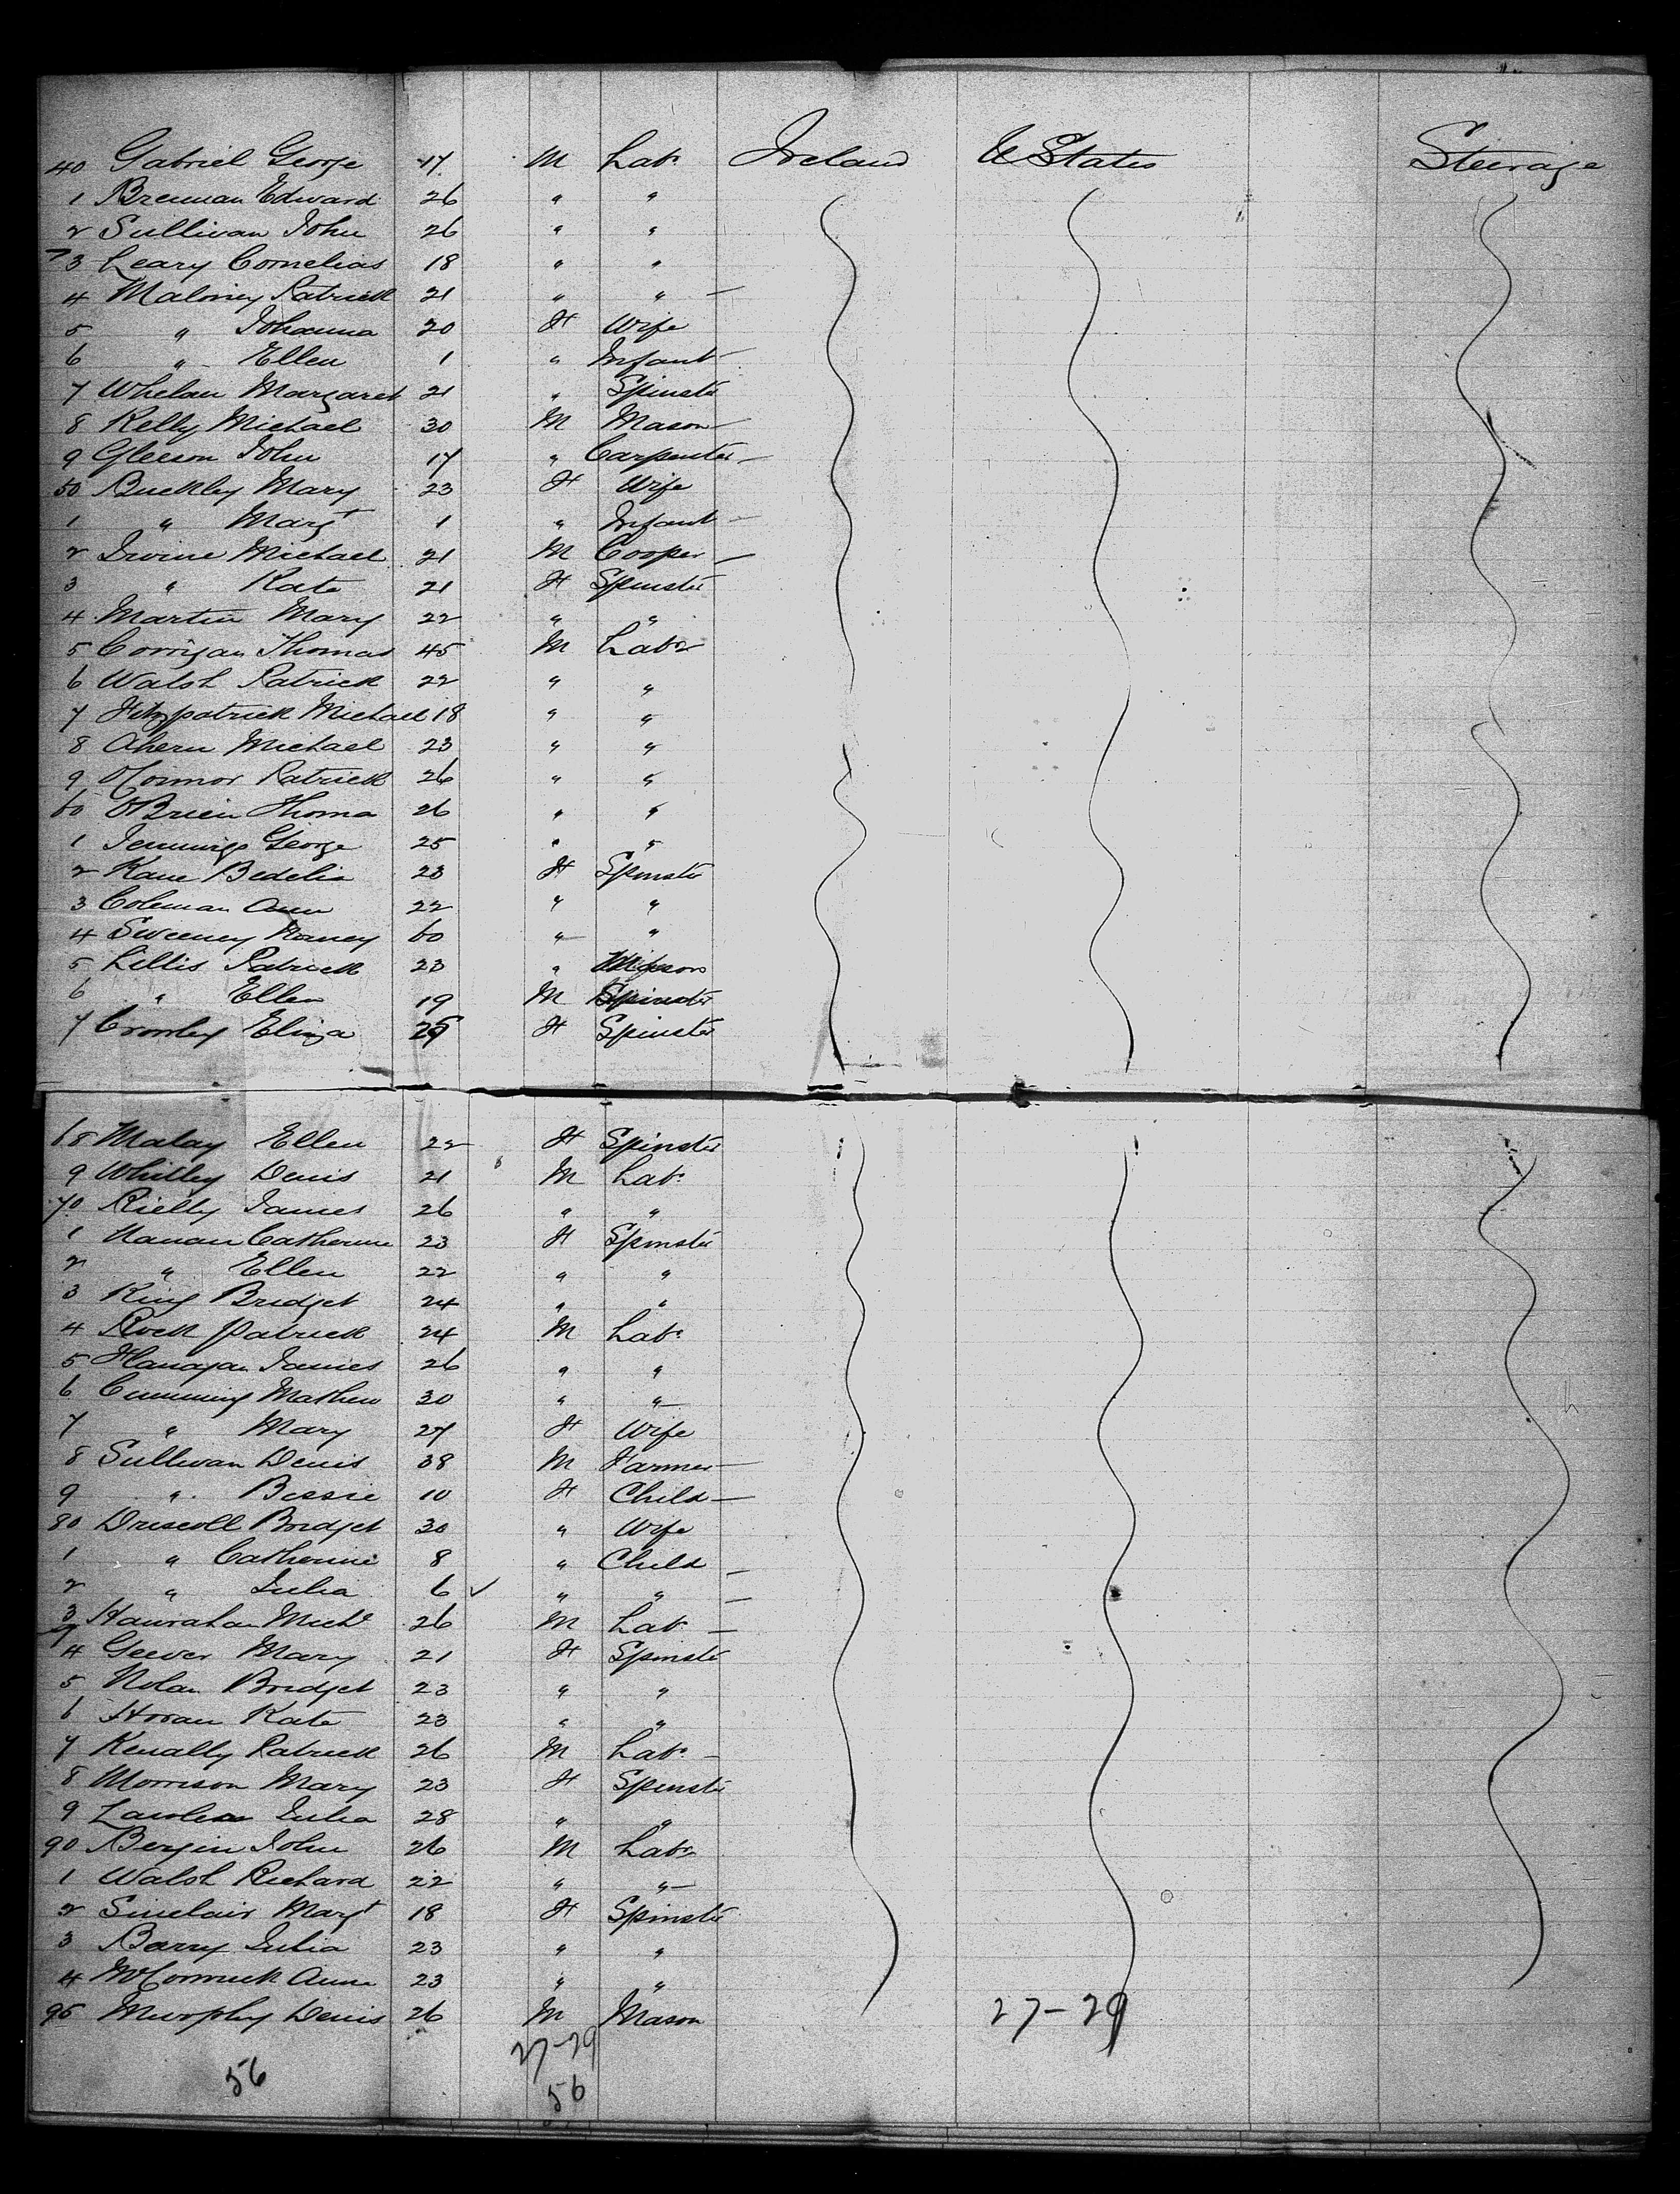 40 Gabriel George 17 M Labr Ireland U States Steerage
1 Brennan Edward 26 " "
2 Sullivan John 26 " "
3 Leary Cornelias 18 " "
4 Maloney Patrick 21 " " —
5 " Johanna 20 F Wife
6 " Ellen 1 " Infant
7 Whelan Margaret 21 " Spinstr
8 Kelly Michael 30 M Mason
9 Gleeson John 17 " Carpenter —
50 Buckley Mary 23 F Wife
1 " Margt 1 " Infant —
2 Irvine Michael 21 M Cooper —
3 " Kate 21 F Spinstr
4 Martin Mary 22 " "
5 Corrigan Thomas 45 M Labr
6 Walsh Patrick 22 " "
7 Fitzpatrick Michael 18 " "
8 Ahern Michael 23 " "
9 O'Connor Patrick 26 " "
60 O'Brien Thoma 26 " "
1 Jennings George 25 " "
2 Kane Bedelia 23 F Spinstr
3 Coleman Ann 22 " "
4 Sweeney Nancy 60 " "
5 Lillis Patrick 23 "
6 " Ellen 19 M Spinstr
7 Crowley Eliza F Spinstr
68 Malay Ellen 22 F Spinstr
9 Whilley Denis 21 M Labr
70 Rielly James 26 " "
1 Hanan Catherine 23 F Spinstr
2 " Ellen 22 " "
3 King Bridget 24 " "
4 Rock Patrick 24 M Labr
5 Flanagan James 26 " "
6 Cumming Mathew 30 " "
7 " Mary 27 F Wife
8 Sullivan Denis 38 M Farmer
9 " Bessie 10 F Child —
80 Driscoll Bridget 30 " Wife
1 " Catherine 8 " Child —
2 " Julia 6 ✓ " " —
3 Hanrahan Michl 26 M Labr —
4 Geever Mary 21 F Spinstr
5 Nolan Bridget 23 " "
6 Horan Kate 23 " "
7 Kenally Patrick 26 M Labr —
8 Morrison Mary 23 F Spinstr
9 Julia 28 " "
90 Bergin John 26 M Labr
1 Walsh Richard 22 " "
2 Sinclair Margt 18 F Spinstr
3 Barry Julia 23 " "
4 McCormick Anne 23 " "
95 Murphy Denis 26 M Mason 27-29
27-29
56 56